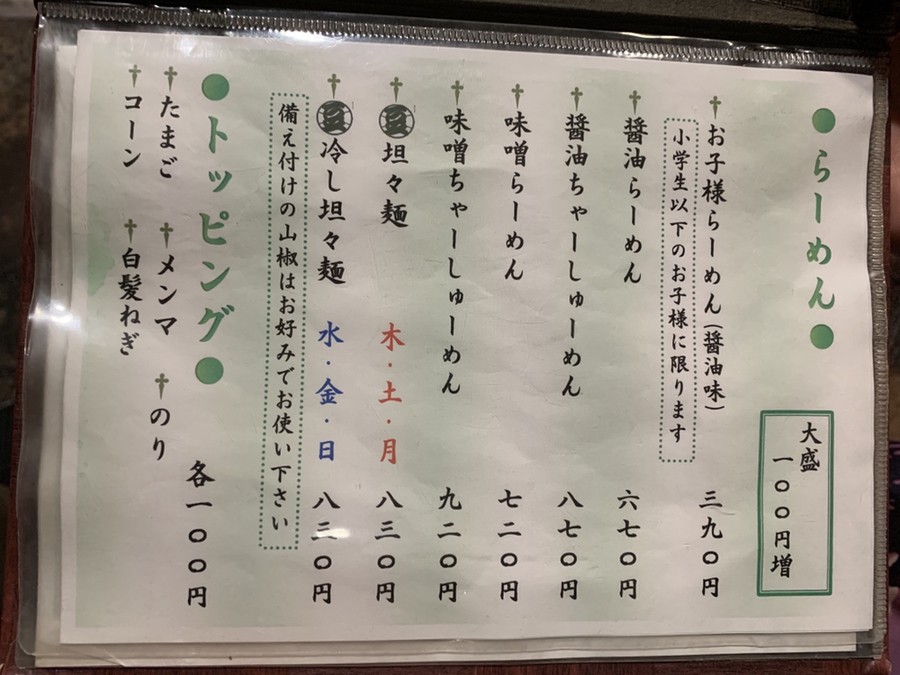 ●らーめん●
大盛
一〇〇円増
お子様らーめん(醤油味) 三九〇円
小学生以下のお子様に限ります
醤油らーめん 六七〇円
醤油ちゃーしゅーめん 八七〇円
味噌らーめん 七二〇円
味噌ちゃーしゅーめん 九二〇円
坦々麺 木・土・月 八三〇円
冷し坦々麺 水・金・日 八三〇円
備え付けの山椒はお好みでお使い下さい
●トッピング● 各一〇〇円
たまご メンマ のり
コーン 白髪ねぎ